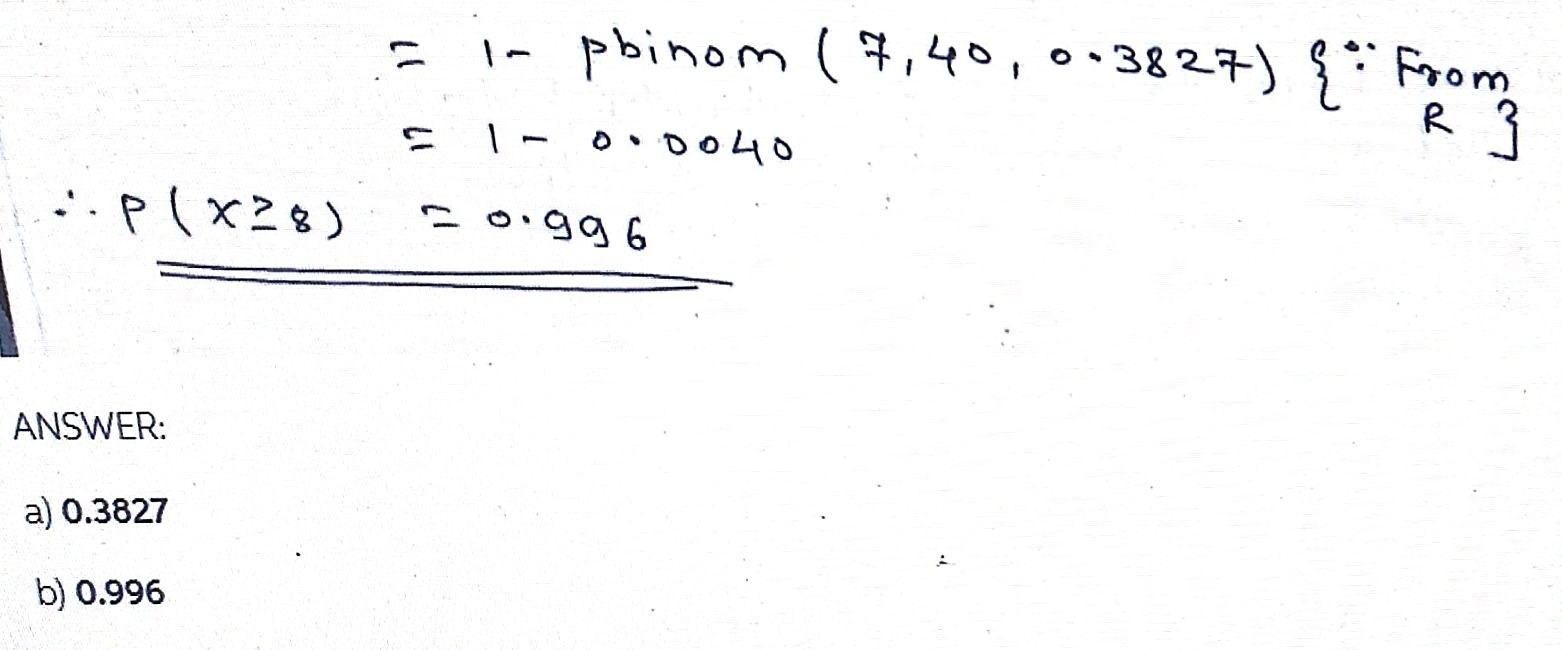 = 1 - pbinom (7, 40, 0.3827) {∵ From R }
= 1 - 0.0040
∴ P(x≥8) = 0.996
ANSWER:
a) 0.3827
b) 0.996